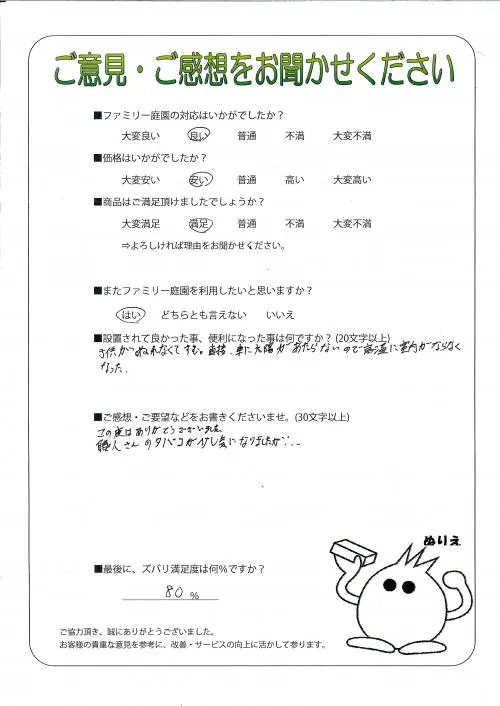 ご意見・ご感想をお聞かせください
■ファミリー庭園の対応はいかがでしたか？
大変良い 良い 普通 不満 大変不満
■価格はいかがでしたか？
大変安い 安い 普通 高い 大変高い
■商品はご満足頂けましたでしょうか？
大変満足 満足 普通 不満 大変不満
⇒よろしければ理由をお聞かせください。
■またファミリー庭園を利用したいと思いますか？
はい どちらとも言えない いいえ
■設置されて良かった事、便利になった事は何ですか？(20文字以上)
子供がぬれなくてすむ。直接、車に太陽があたらないので高温に室内がならなく
なった.
■ご感想・ご要望などをお書きくださいませ。(30文字以上)
この度はありがとうございました
職人さんのタバコが少し気になりましたが…
ぬりえ
■最後に、ズバリ満足度は何％ですか？
80 %
ご協力頂き、誠にありがとうございました。
お客様の貴重な意見を参考に、改善・サービスの向上に活かして参ります。